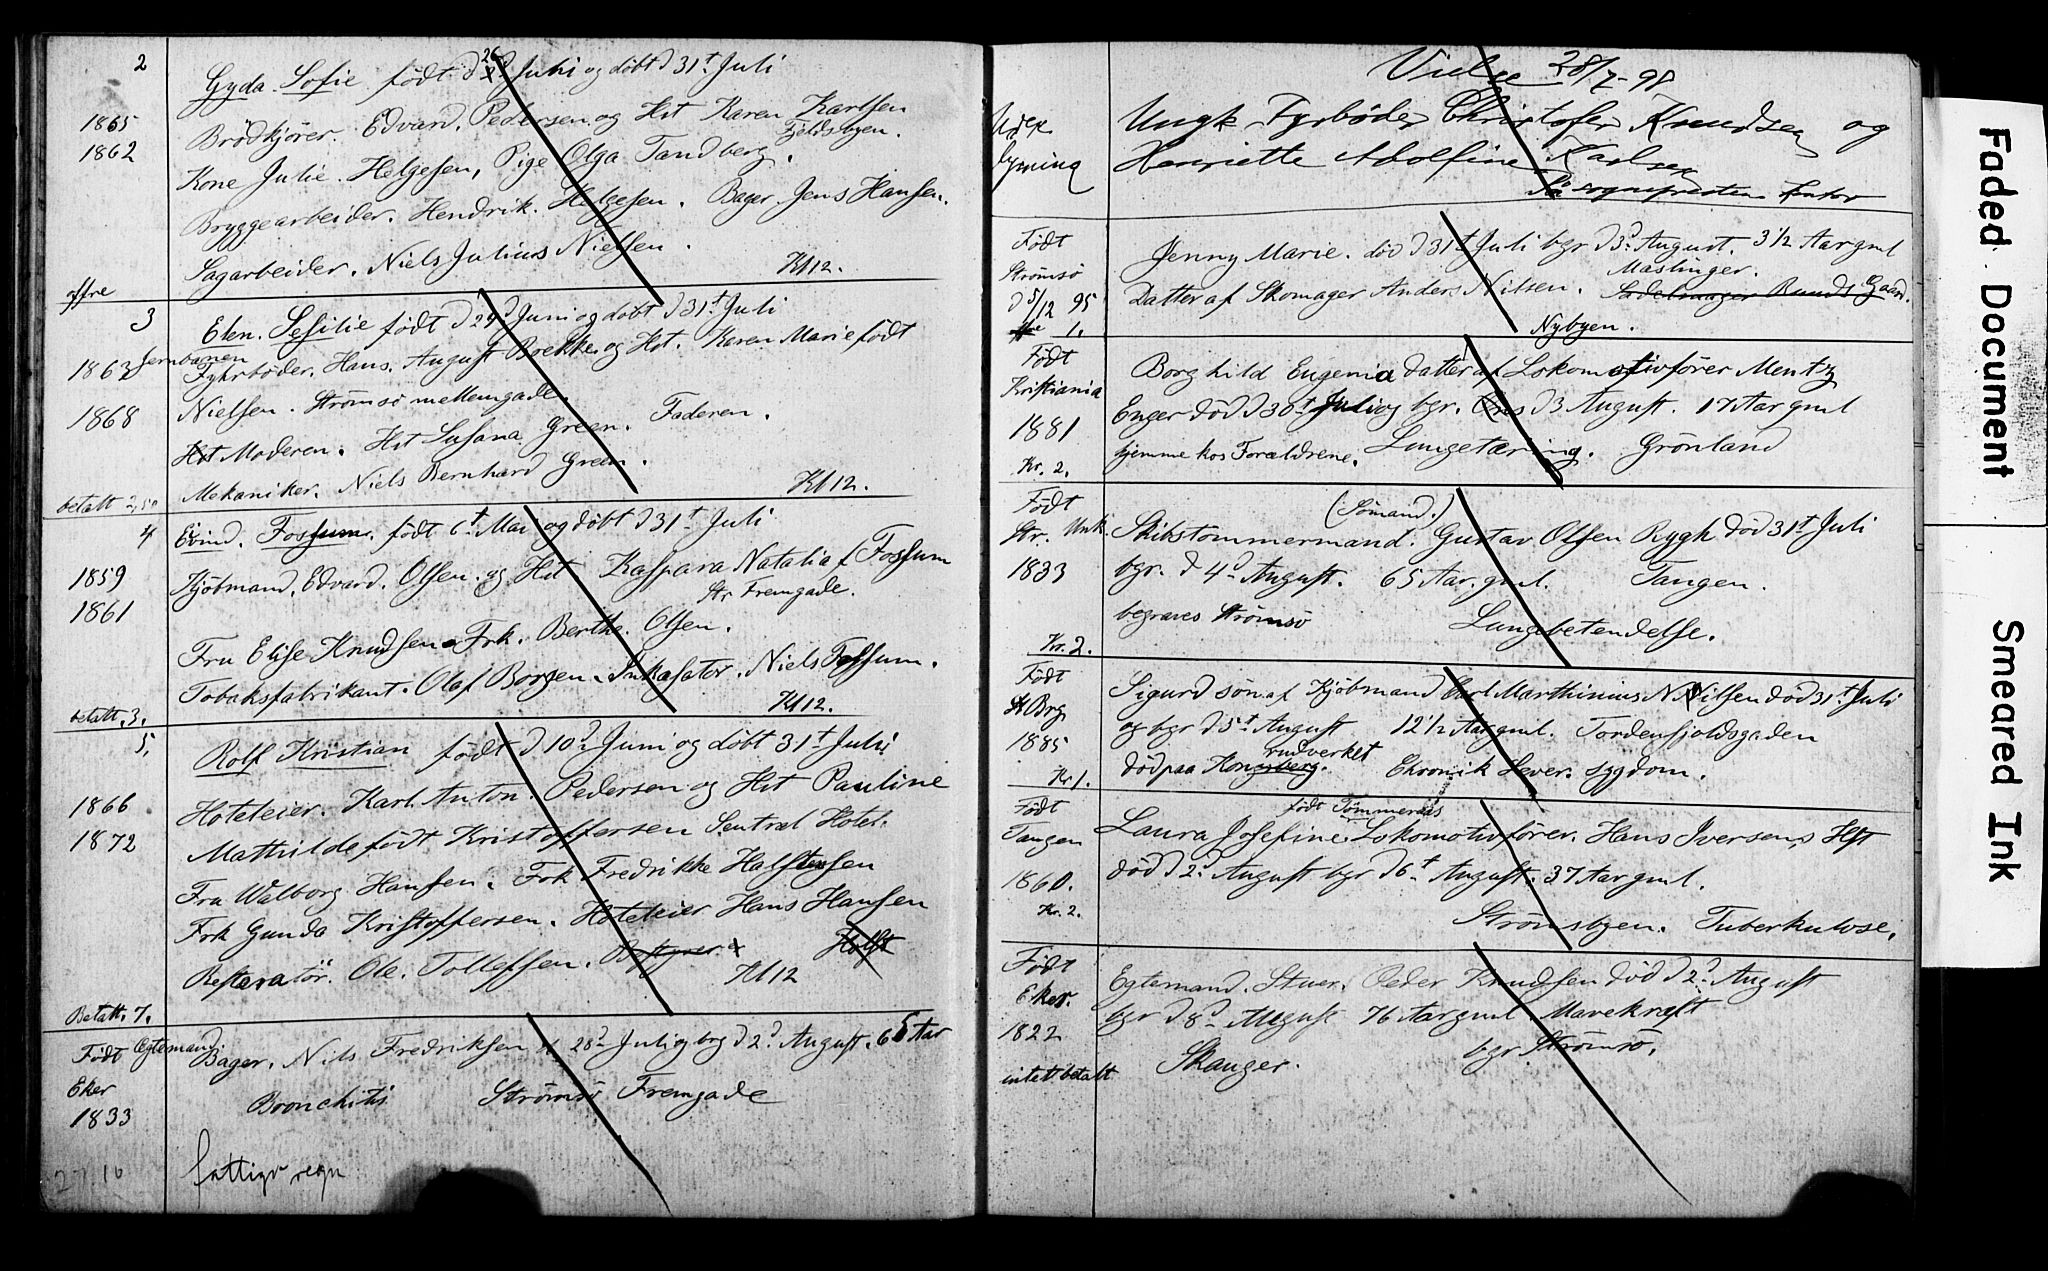 2
Gyda Sofie født d 26 Juni og døbt d 31t Juli
1865
Brødkjører. Edvard. Pedersen og Hst Karen Karlsen
1862
Fjeldsbyen.
Kone Julie. Helgesen, Pige Olga Tandberg.
Bryggearbeider. Hendrik. Helgesen. Bager. Jens Hansen.
Sagarbeider. Niels Julius Nielsen.
Kl 12.
offre
3
Elen. Sesilie født d 29d Juni og døbt d 31t Juli
1863
Jernbanen
Fyhrbøder. Hans. August Brekke og Hst. Karen Marie født
1868
Nielsen. Strømsø mellemgade.
Hst Moderen. Hst Susana Green. Faderen.
Mekaniker. Niels Bernhard Green.
betalt 2,50
Kl 12.
4
Eivind. Fossum. født 6t Mai og døbt d 31t Juli
1859
Kjøbmand. Edvard. Olsen. og Hst Kaspara Natalia f Fossum
1861
Str Fremgade.
Fru Elise Knudsen Frk. Berthe Olsen.
Tobaksfabrikant. Olaf Borgen. Inkasator. Niels Fossum.
betalt. 3.
Kl 12.
5.
Rolf Kristian født d 10d Juni og døbt 31t Juli
1866
Hoteleier. Karl Anton. Pedersen og Hst Pauline
1872
Mathilde født Kristoffersen Sentral Hotel.
Fru Walborg Hansen. Frk Fredrikke Halstensen
Frk Gunda Kristoffersen. Hoteleier Hans Hansen
Restøratør. Ole. Tollefsen.
Holst
Kl 12
Betalt. 7.
Født
Egtemand
Bager. Nils Fredriksen d 28d Juli og bg d 2d August. 65 Aar
Eker
Bronchitis Strømsø Fremgade
1833
27.10
fattigv regn
Vielse 28/7-98
Uden
lysning
Ungk Fyrbøder Christofer Knudsen og
Henriette Adolfine Karlsen
Paa sogneprestens kontor
Født
Strømsø
d 5/12 95
offre 1.
Jenny Marie. død d 31t Juli bgr d 3d August. 3 1/2 Aar gml
Maslinger.
Datter af Skomager Anders Nilsen. Sadelmager Runds Gaard.
Nybyen.
Født
Kristiania
1881
Kr. 2.
Borghild Eugenia datter af Lokomotivfører Mentz
Enger død d 30t Juli og bgr. d 3 August. 17 Aar gml
hjemme hos Forældrene. Lungetæring. Grønland
Født
Str. Unk.
1833
Kr. 2.
(Sømand.)
Skibstømmermand. Gustav Olsen Rygh død 31t Juli
bgr. d 4d August. 65 Aar. gml. Tangen.
begraves Strømsø Lungebetendelse.
Født
Brg
1885
Kr 1.
Sigurd søn af Kjøbmand Carl Marthinius N Nilsen død 31t Juli
og bgr d 5t August 12 1/2 Aar gml. Tordenskjoldsgaden
rudverket
død paa Kongsberg. Chronik Lever. sygdom.
Født
Tangen
1860.
Kr. 2.
født Tømmeraas
Laura Josefine Lokomotivfører. Hans Iversens Hst
død d 2d August bgr d 6t August. 37 Aar gml.
Strømsbyen. Tuberkulose.
Født
Eker.
1822
intet betalt
Egtemand. Stuer. Peder Knudsen død d 2d August
bgr d 8d August 76 Aar gml. Mavekreft
Skanger. bgr Strømsø.
Faded Document
Smeared Ink